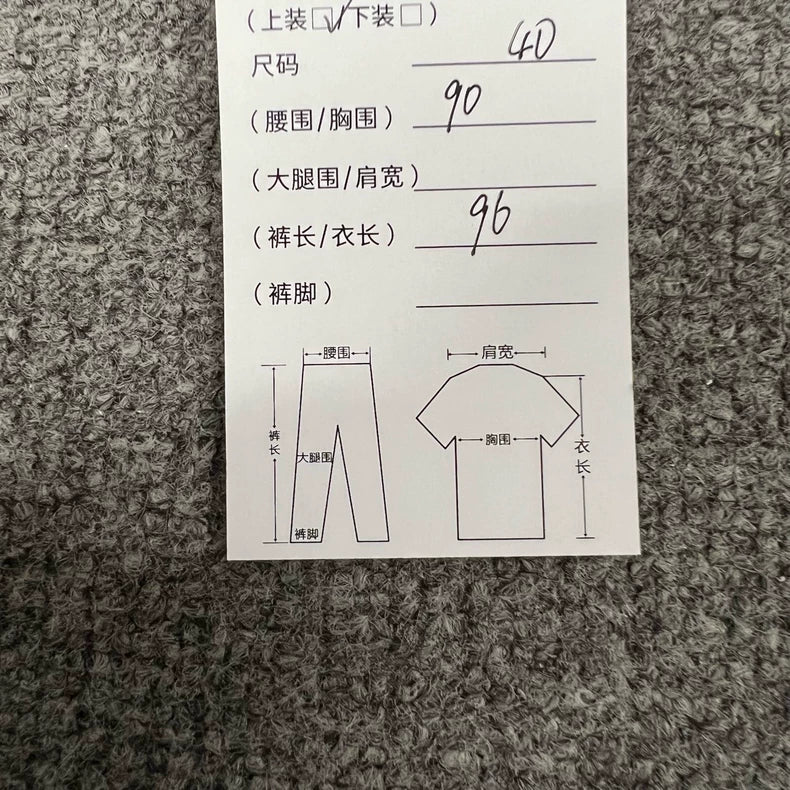 （上装☑/下装☐）
尺码 40
（腰围/胸围） 90
（大腿围/肩宽）
（裤长/衣长） 96
（裤脚）
腰围 肩宽
裤长
大腿围
胸围
衣长
裤脚